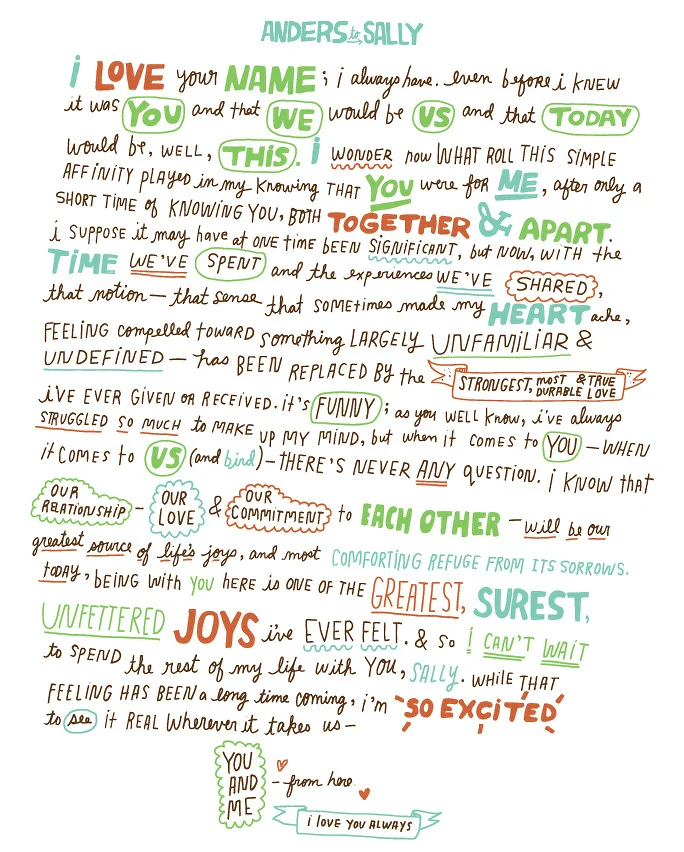 ANDERS to SALLY
i LOVE your NAME; i always have. even before i KNEW
it was YOU and that WE would be US and that TODAY
would be, WELL, THIS. i WONDER now WHAT ROLL THIS SIMPLE
AFFINITY PLAYED in my KNOWING THAT YOU were for ME, after only a
SHORT TIME of KNOWING YOU, BOTH TOGETHER & APART.
i SUPPOSE it may have at ONE TIME BEEN SIGNIFICANT, but NOW, WITH the
TIME WE'VE SPENT and the experiences WE'VE SHARED,
that notion — that sense that SOMETIMES made my HEART ache,
FEELING compelled TOWARD something LARGELY UNFAMILIAR &
UNDEFINED — has BEEN REPLACED BY the STRONGEST, MOST & TRUE DURABLE LOVE
i'VE EVER GIVEN OR RECEIVED. it's FUNNY; as you WELL KNOW, i've always
STRUGGLED SO MUCH to MAKE UP MY MIND, but when it comes to YOU — WHEN
it COMES to US (and bird) — THERE'S NEVER ANY QUESTION. i KNOW THAT
OUR RELATIONSHIP — OUR LOVE & OUR COMMITMENT to EACH OTHER — will be our
greatest source of life's joys, and most COMFORTING REFUGE FROM ITS SORROWS.
today, BEING WITH YOU HERE is ONE OF THE GREATEST, SUREST,
UNFETTERED JOYS i've EVER FELT. & SO i CAN'T WAIT
to SPEND the rest of my life WITH YOU, SALLY. WHILE THAT
FEELING HAS BEEN a long time coming, i'm SO EXCITED
to see it REAL Wherever it takes us —
YOU AND ME — from here.
i LOVE YOU ALWAYS